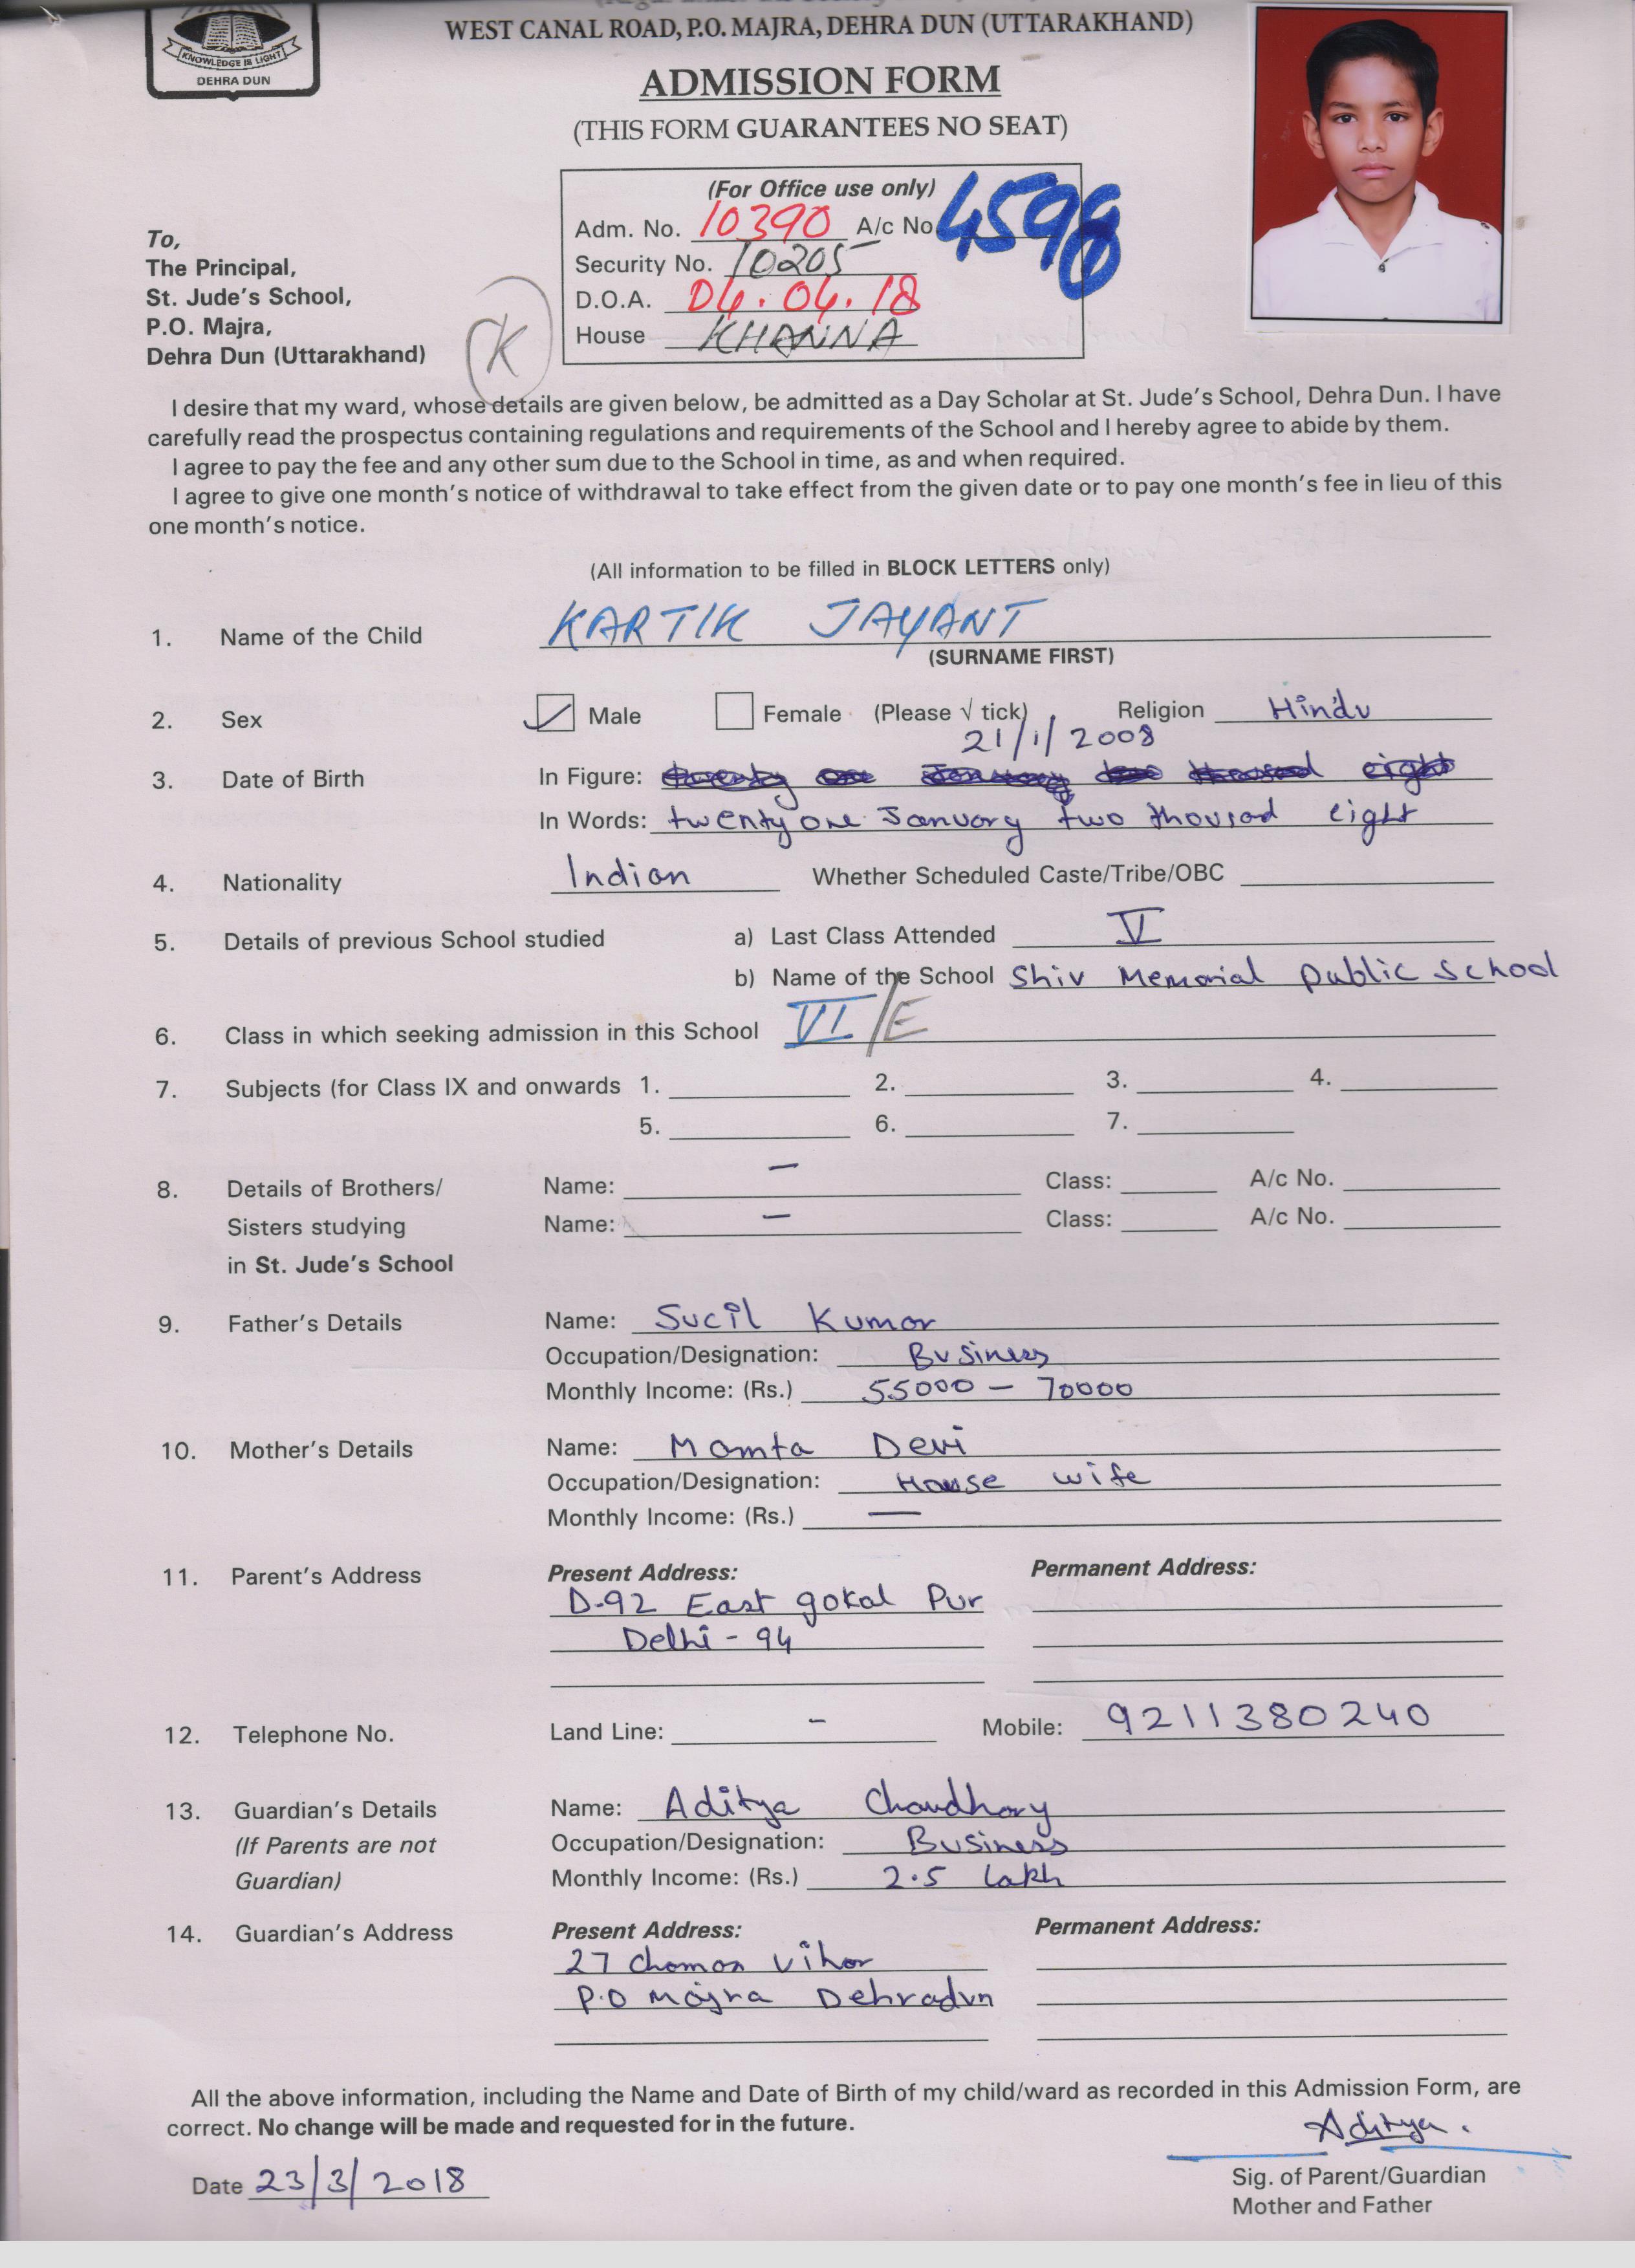 WEST CANAL ROAD, P.O. MAJRA, DEHRA DUN (UTTARAKHAND)
KNOWLEDGE IS LIGHT
DEHRA DUN
ADMISSION FORM
(THIS FORM GUARANTEES NO SEAT)
(For Office use only)
Adm. No. 10390 A/c No. 4598
Security No. 10205
D.O.A. 04.04.18
House KHANNA
To,
The Principal,
St. Jude's School,
P.O. Majra,
Dehra Dun (Uttarakhand)
K
I desire that my ward, whose details are given below, be admitted as a Day Scholar at St. Jude's School, Dehra Dun. I have
carefully read the prospectus containing regulations and requirements of the School and I hereby agree to abide by them.
I agree to pay the fee and any other sum due to the School in time, as and when required.
I agree to give one month's notice of withdrawal to take effect from the given date or to pay one month's fee in lieu of this
one month's notice.
(All information to be filled in BLOCK LETTERS only)
1. Name of the Child KARTIK JAYANT
(SURNAME FIRST)
2. Sex Male Female (Please √ tick) Religion Hindu
21/1/2008
3. Date of Birth In Figure: twenty one January two thousad eight
In Words: twenty one January two thousad eight
4. Nationality Indian Whether Scheduled Caste/Tribe/OBC
5. Details of previous School studied a) Last Class Attended V
b) Name of the School Shiv Memorial Public School
6. Class in which seeking admission in this School VI/E
7. Subjects (for Class IX and onwards 1. 2. 3. 4.
5. 6. 7.
8. Details of Brothers/ Name: – Class: A/c No.
Sisters studying Name: – Class: A/c No.
in St. Jude's School
9. Father's Details Name: Sucil Kumar
Occupation/Designation: Business
Monthly Income: (Rs.) 55000 – 70000
10. Mother's Details Name: Mamta Devi
Occupation/Designation: House wife
Monthly Income: (Rs.) —
11. Parent's Address Present Address: Permanent Address:
D-92 East gokal Pur
Delhi - 94
12. Telephone No. Land Line: – Mobile: 9211380240
13. Guardian's Details Name: Aditya Chaudhary
(If Parents are not Occupation/Designation: Business
Guardian) Monthly Income: (Rs.) 2.5 lakh
14. Guardian's Address Present Address: Permanent Address:
27 Chaman Vihar
P.O Majra Dehradun
All the above information, including the Name and Date of Birth of my child/ward as recorded in this Admission Form, are
correct. No change will be made and requested for in the future.
Aditya.
Date 23/3/2018
Sig. of Parent/Guardian
Mother and Father